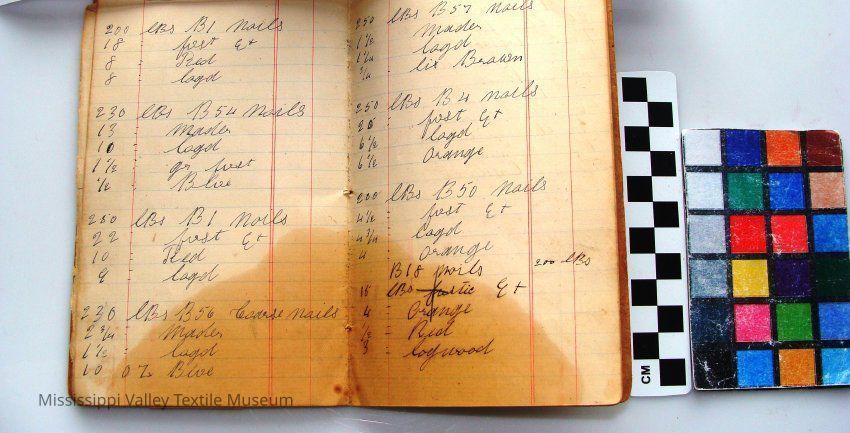 200 lbs B1 Noils
18 " fust Ext
8 " Red
8 " Logd
230 lbs B54 Noils
13 " Mader
10 " Logd
1 1/2 " gr fust
1/2 " Blue
250 lbs B1 Noils
22 " fust Ext
10 " Red
9 " Logd
230 lbs B56 Coarse Noils
2 3/4 " Mader
1 1/2 " Logd
10 oz Blue
250 lbs B57 Noils
1 1/2 " Mader
1 1/4 " Logd
3/4 " Brown
250 lbs B4 Noils
20 " fust Ext
6 1/2 " Logd Ext
6 1/2 " Orange
200 lbs B50 Noils
4 1/2 " fust Ext
4 3/4 " Logd
4 " Orange
B18 Noils 200 lbs
lbs fustic Ext
4 " Orange
1/2 " Red
3 " Logwood
CM
Mississippi Valley Textile Museum